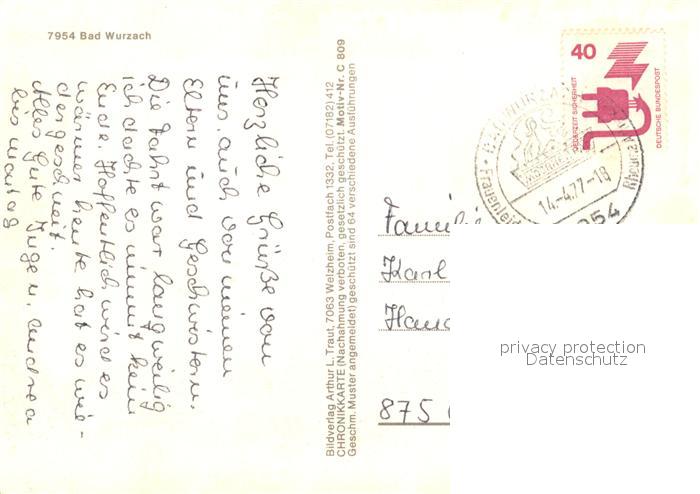 7954 Bad Wurzach
Herzliche Grüße von
uns, auch von meinen
Eltern und Geschwistern.
Die Fahrt war langweilig
ich dachte es nimmt kein
Ende. Hoffentlich wird es
wärmer heute hat es wie-
der geschneit.
Alles Gute Inge u. Andrea
bis montag
Bildverlag Arthur L. Traut, 7063 Welzheim, Postfach 1332, Tel. (07182) 412
CHRONIKKARTE (Nachahmung verboten, gesetzlich geschützt. Motiv-Nr. C 809
Geschm. Muster angemeldet) geschützt sind 64 verschiedene Ausführungen
40
JEDERZEIT SICHERHEIT
DEUTSCHE BUNDESPOST
BAD WURZACH
14.-4.77-18
7954
Familie
Karl
875
privacy protection
Datenschutz